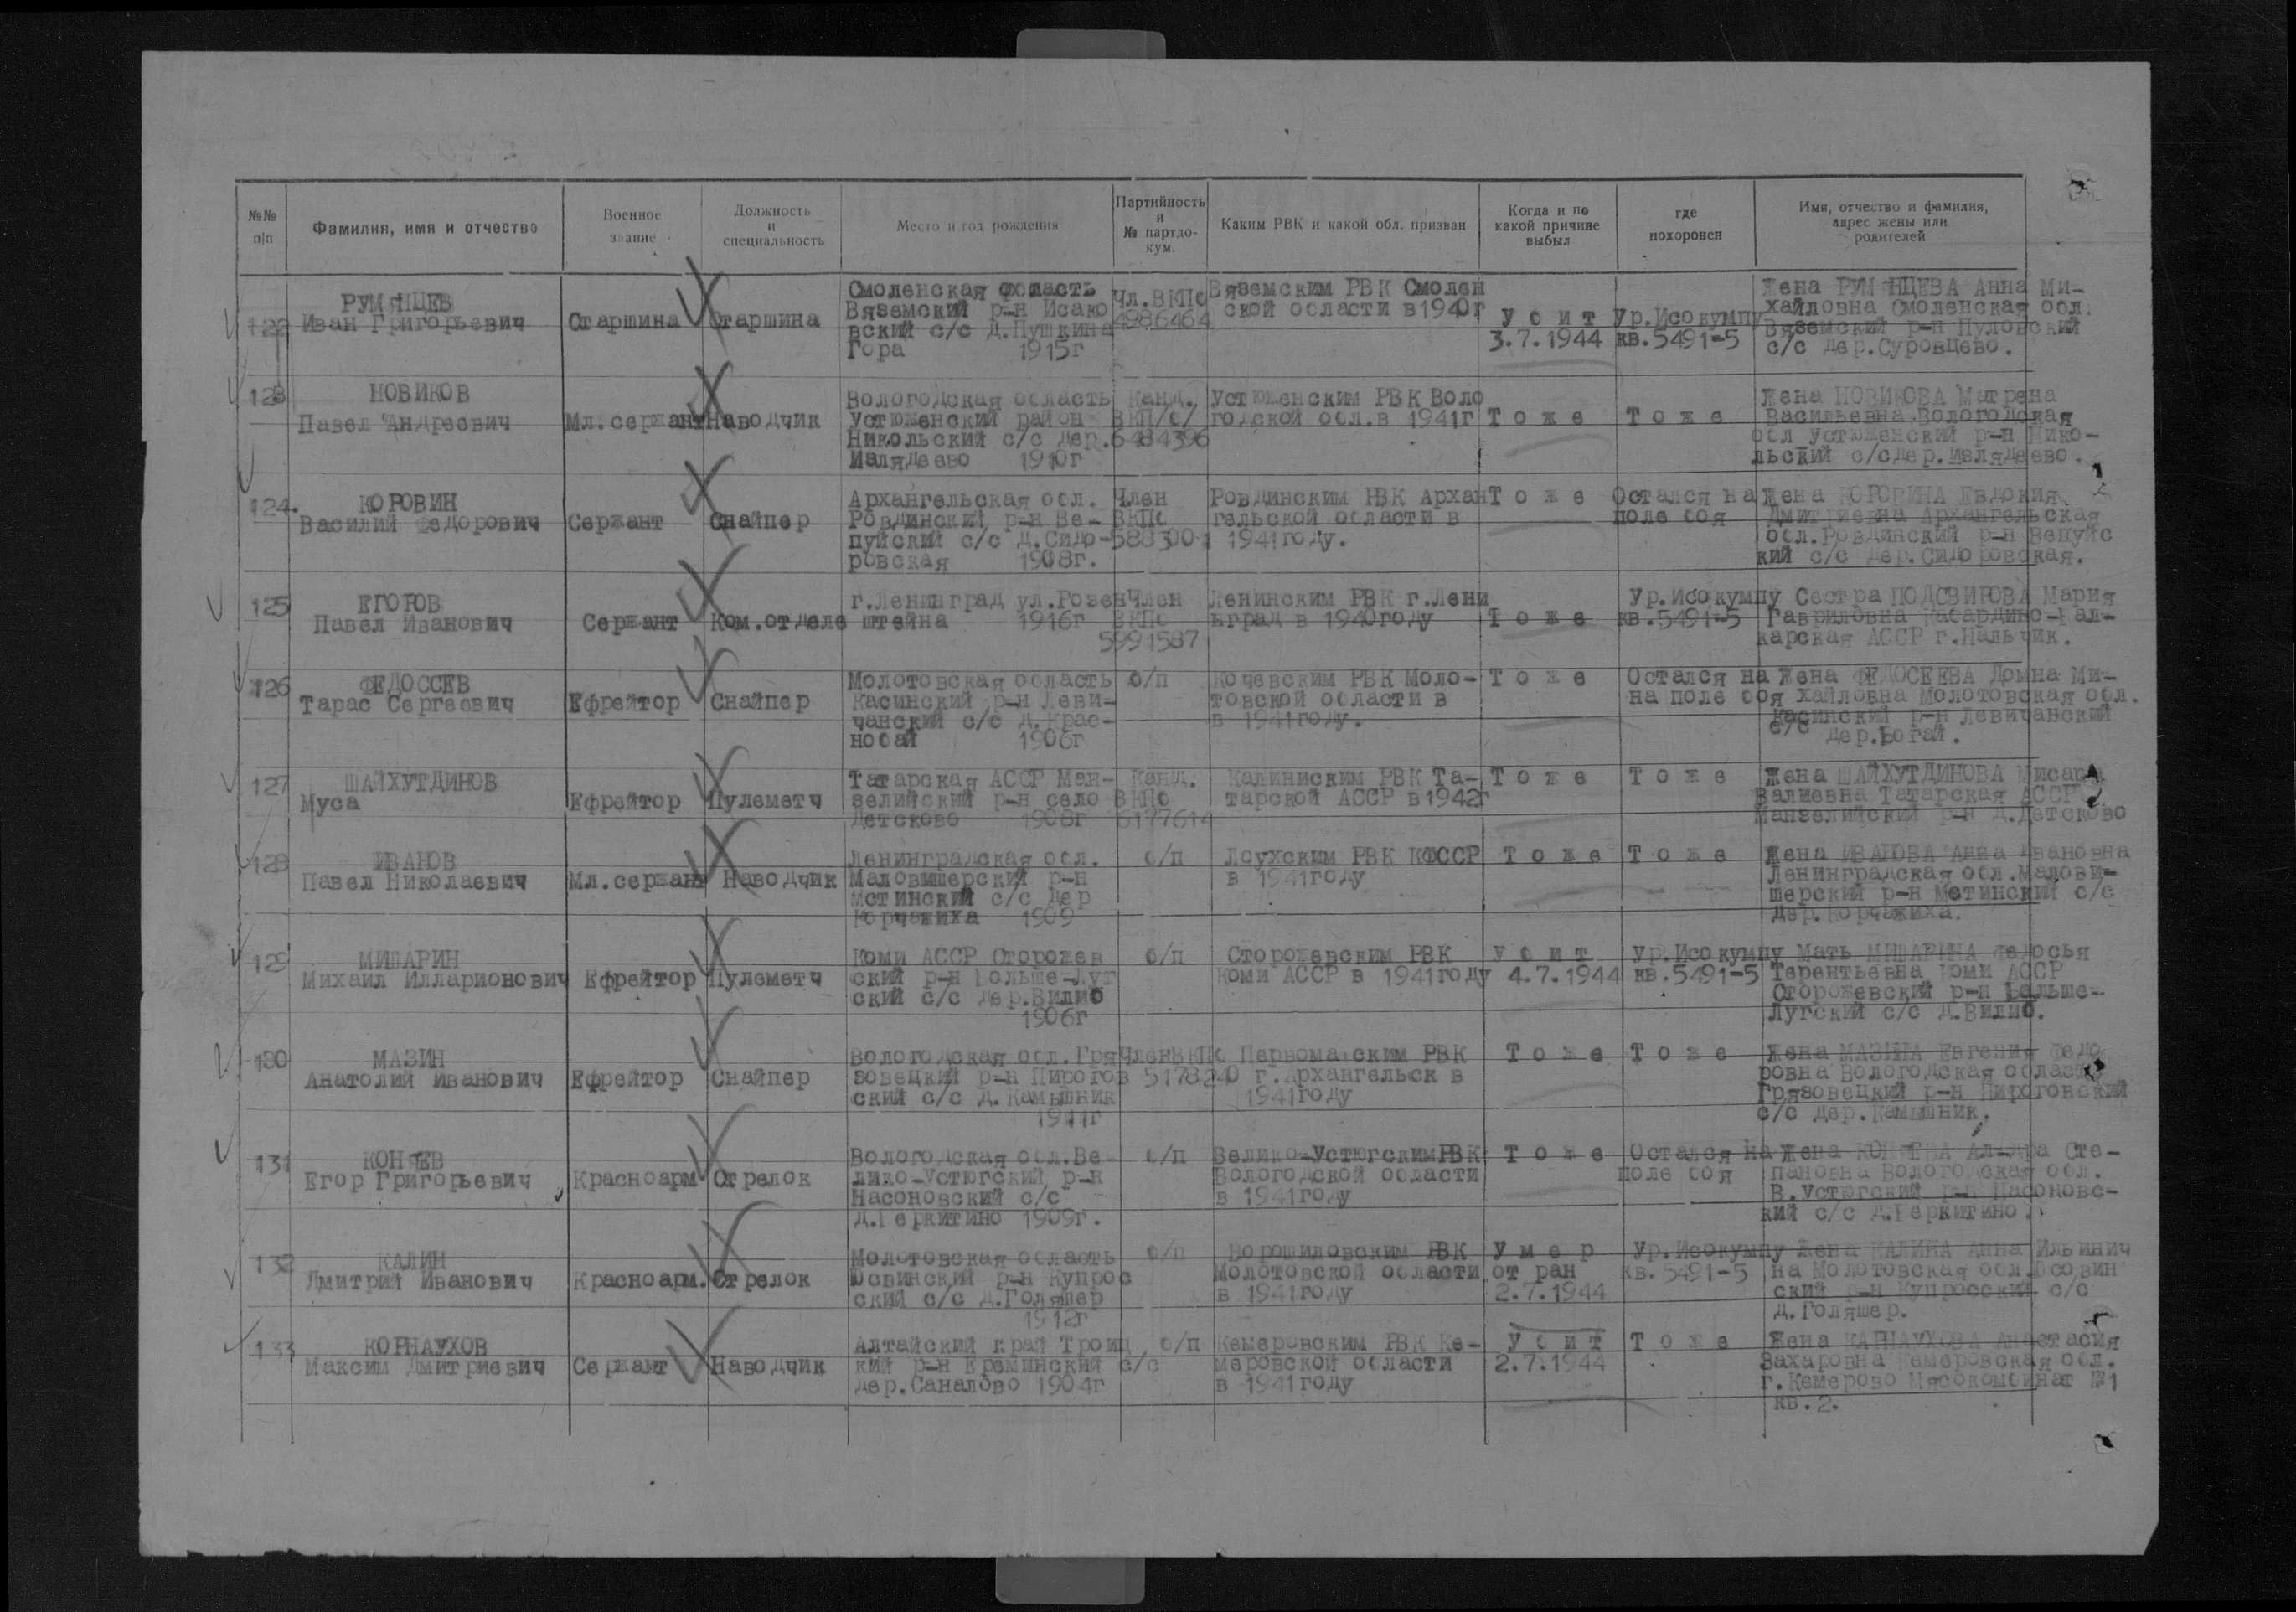 №№ п|п
Фамилия, имя и отчество
Военное звание
Должность и специальность
Место и год рождения
Партийность и № партдокум.
Каким РВК и какой обл. призван
Когда и по какой причине выбыл
где похоронен
Имя, отчество и фамилия, адрес жены или родителей
122
РУМЯНЦЕВ
Иван Григорьевич
Старшина
Старшина
Смоленская область
Вяземский р-н Исако
вский с/с д.Пушкина
Гора 1915г
Чл.ВКПб
4986464
Вяземским РВК Смолен
ской области в 1940г
У б и т
3.7.1944
Ур.Исокумпу
кв.5491-5
Жена РУМЯНЦЕВА Анна Ми-
хайловна Смоленская обл.
Вяземский р-н Пуловский
с/с дер.Суровцево.
123
НОВИКОВ
Павел Андреевич
Мл.сержант
Наводчик
Вологодская область
Устюженский район
Никольский с/с дер.
Малядеево 1910г
Канд.
ВКП/б/
6484396
Устюженским РВК Воло
годской обл.в 1941г
Т о ж е
Т о ж е
Жена НОВИКОВА Матрена
Васильевна Вологодская
обл Устюженский р-н Нико-
льский с/с дер.Малядеево.
124.
КОРОВИН
Василий Федорович
Сержант
Снайпер
Архангельская обл.
Ровдинский р-н Ве-
пуйский с/с д.Сидо-
ровская 1908г.
Член
ВКПб
5883001
Ровдинским РВК Архан
гельской области в
1941году.
Т о ж е
Остался на
поле боя
Жена КОРОВИНА Евдокия
Дмитриевна Архангельская
обл.Ровдинский р-н Вепуйс
кий с/с дер.Сидоровская.
125
ЕГОРОВ
Павел Иванович
Сержант
Ком.отделе
г.Ленинград ул.Розен
штейна 1916г
Член
ВКПб
5991587
Ленинским РВК г.Лени
нград в 1940году
Т о ж е
Ур.Исокумпу
кв.5491-5
Сестра ПОДСВИРОВА Мария
Гавриловна Кабардино-Бал-
карская АССР г.Нальчик.
126
ФЕДОССЕВ
Тарас Сергеевич
Ефрейтор
Снайпер
Молотовская область
Касинский р-н Леви-
чанский с/с д.Крас-
нобай 1906г
б/п
Кочевским РВК Моло-
товской области в
в 1941году.
Т о ж е
Остался на
на поле боя
Жена ФЕДОСЕЕВА Домна Ми-
хайловна Молотовская обл.
Касинский р-н Левичанский
с/с дер.Богай.
127
ШАЙХУТДИНОВ
Муса
Ефрейтор
Пулеметч
Татарская АССР Ман-
зелийский р-н село
Детсково 1908г
Канд.
ВКПб
6177614
Калиниским РВК Та-
тарской АССР в1942г
Т о ж е
Т о ж е
Жена ШАЙХУТДИНОВА Мисара
Валиевна Татарская АССР
Манзелийский р-н д.Детсково
128
ИВАНОВ
Павел Николаевич
Мл.сержант
Наводчик
Ленинградская обл.
Маловишерский р-н
Мстинский с/с дер
Корчажиха 1909
б/п
Лоухским РВК КФССР
в 1941году
Т о ж е
Т о ж е
Жена ИВАНОВА Анна Ивановна
Ленинградская обл.Малови-
шерский р-н Мстинский с/с
дер.Корчажиха.
129
МИШАРИН
Михаил Илларионович
Ефрейтор
Пулеметч
Коми АССР Сторожев
ский р-н Больше-Луг
ский с/с дер.Вилиб
1906г
б/п
Сторожевским РВК
Коми АССР в 1941году
У б и т
4.7.1944
Ур.Исокумпу
кв.5491-5
Мать МИШАРИНА Федосья
Терентьевна Коми АССР
Сторожевский р-н Больше-
Лугский с/с д.Вилиб.
130
МАЗИН
Анатолий Иванович
Ефрейтор
Снайпер
Вологодская обл.Гря
зовецкий р-н Пирогов
ский с/с д.Камышник
1911г
ЧленВКПб
5178240
Первомайским РВК
г.Архангельск в
1941году
Т о ж е
Т о ж е
Жена МАЗИНА Евгения Федо
ровна Вологодская область
Грязовецкий р-н Пироговский
с/с дер.Камышник.
131
КОНЯЕВ
Егор Григорьевич
Красноарм
Стрелок
Вологодская обл.Ве-
лико-Устюгский р-н
Насоновский с/с
д.Теркитино 1909г.
б/п
Велико-УстюгскимРВК
Вологодской области
в 1941году
Т о ж е
Остался на
поле боя
Жена КОНЯЕВА Ал-дра Сте-
пановна Вологодская обл.
В.Устюгский р-н Насоновс-
кий с/с д.Теркитино.
132
КАЛИН
Дмитрий Иванович
Красноарм.
Стрелок
Молотовская область
Юсвинский р-н Купрос
ский с/с д.Голяшер
1912г
б/п
Ворошиловским РВК
Молотовской области
в 1941году
У м е р
от ран
2.7.1944
Ур.Исокумпу
кв.5491-5
Жена КАЛИНА Анна Ильинич
на Молотовская обл.Юсовин
ский р-н Купросский с/с
д.Голяшер.
133
КОРНАУХОВ
Максим Дмитриевич
Сержант
Наводчик
Алтайский край Троиц
кий р-н Еремински с/с
дер.Саналово 1904г
б/п
Кемеровским РВК Ке-
меровской области
в 1941году
У б и т
2.7.1944
Т о ж е
Жена КАРНАУХОВА Анастасия
Захаровна Кемеровская обл.
г.Кемерово Мясокомбинат №1
кв.2.